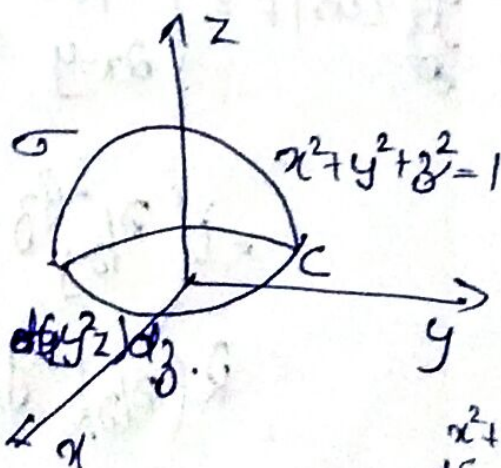 z
σ
x²+y²+z²=1
C
y²z) dz
y
x
x²+